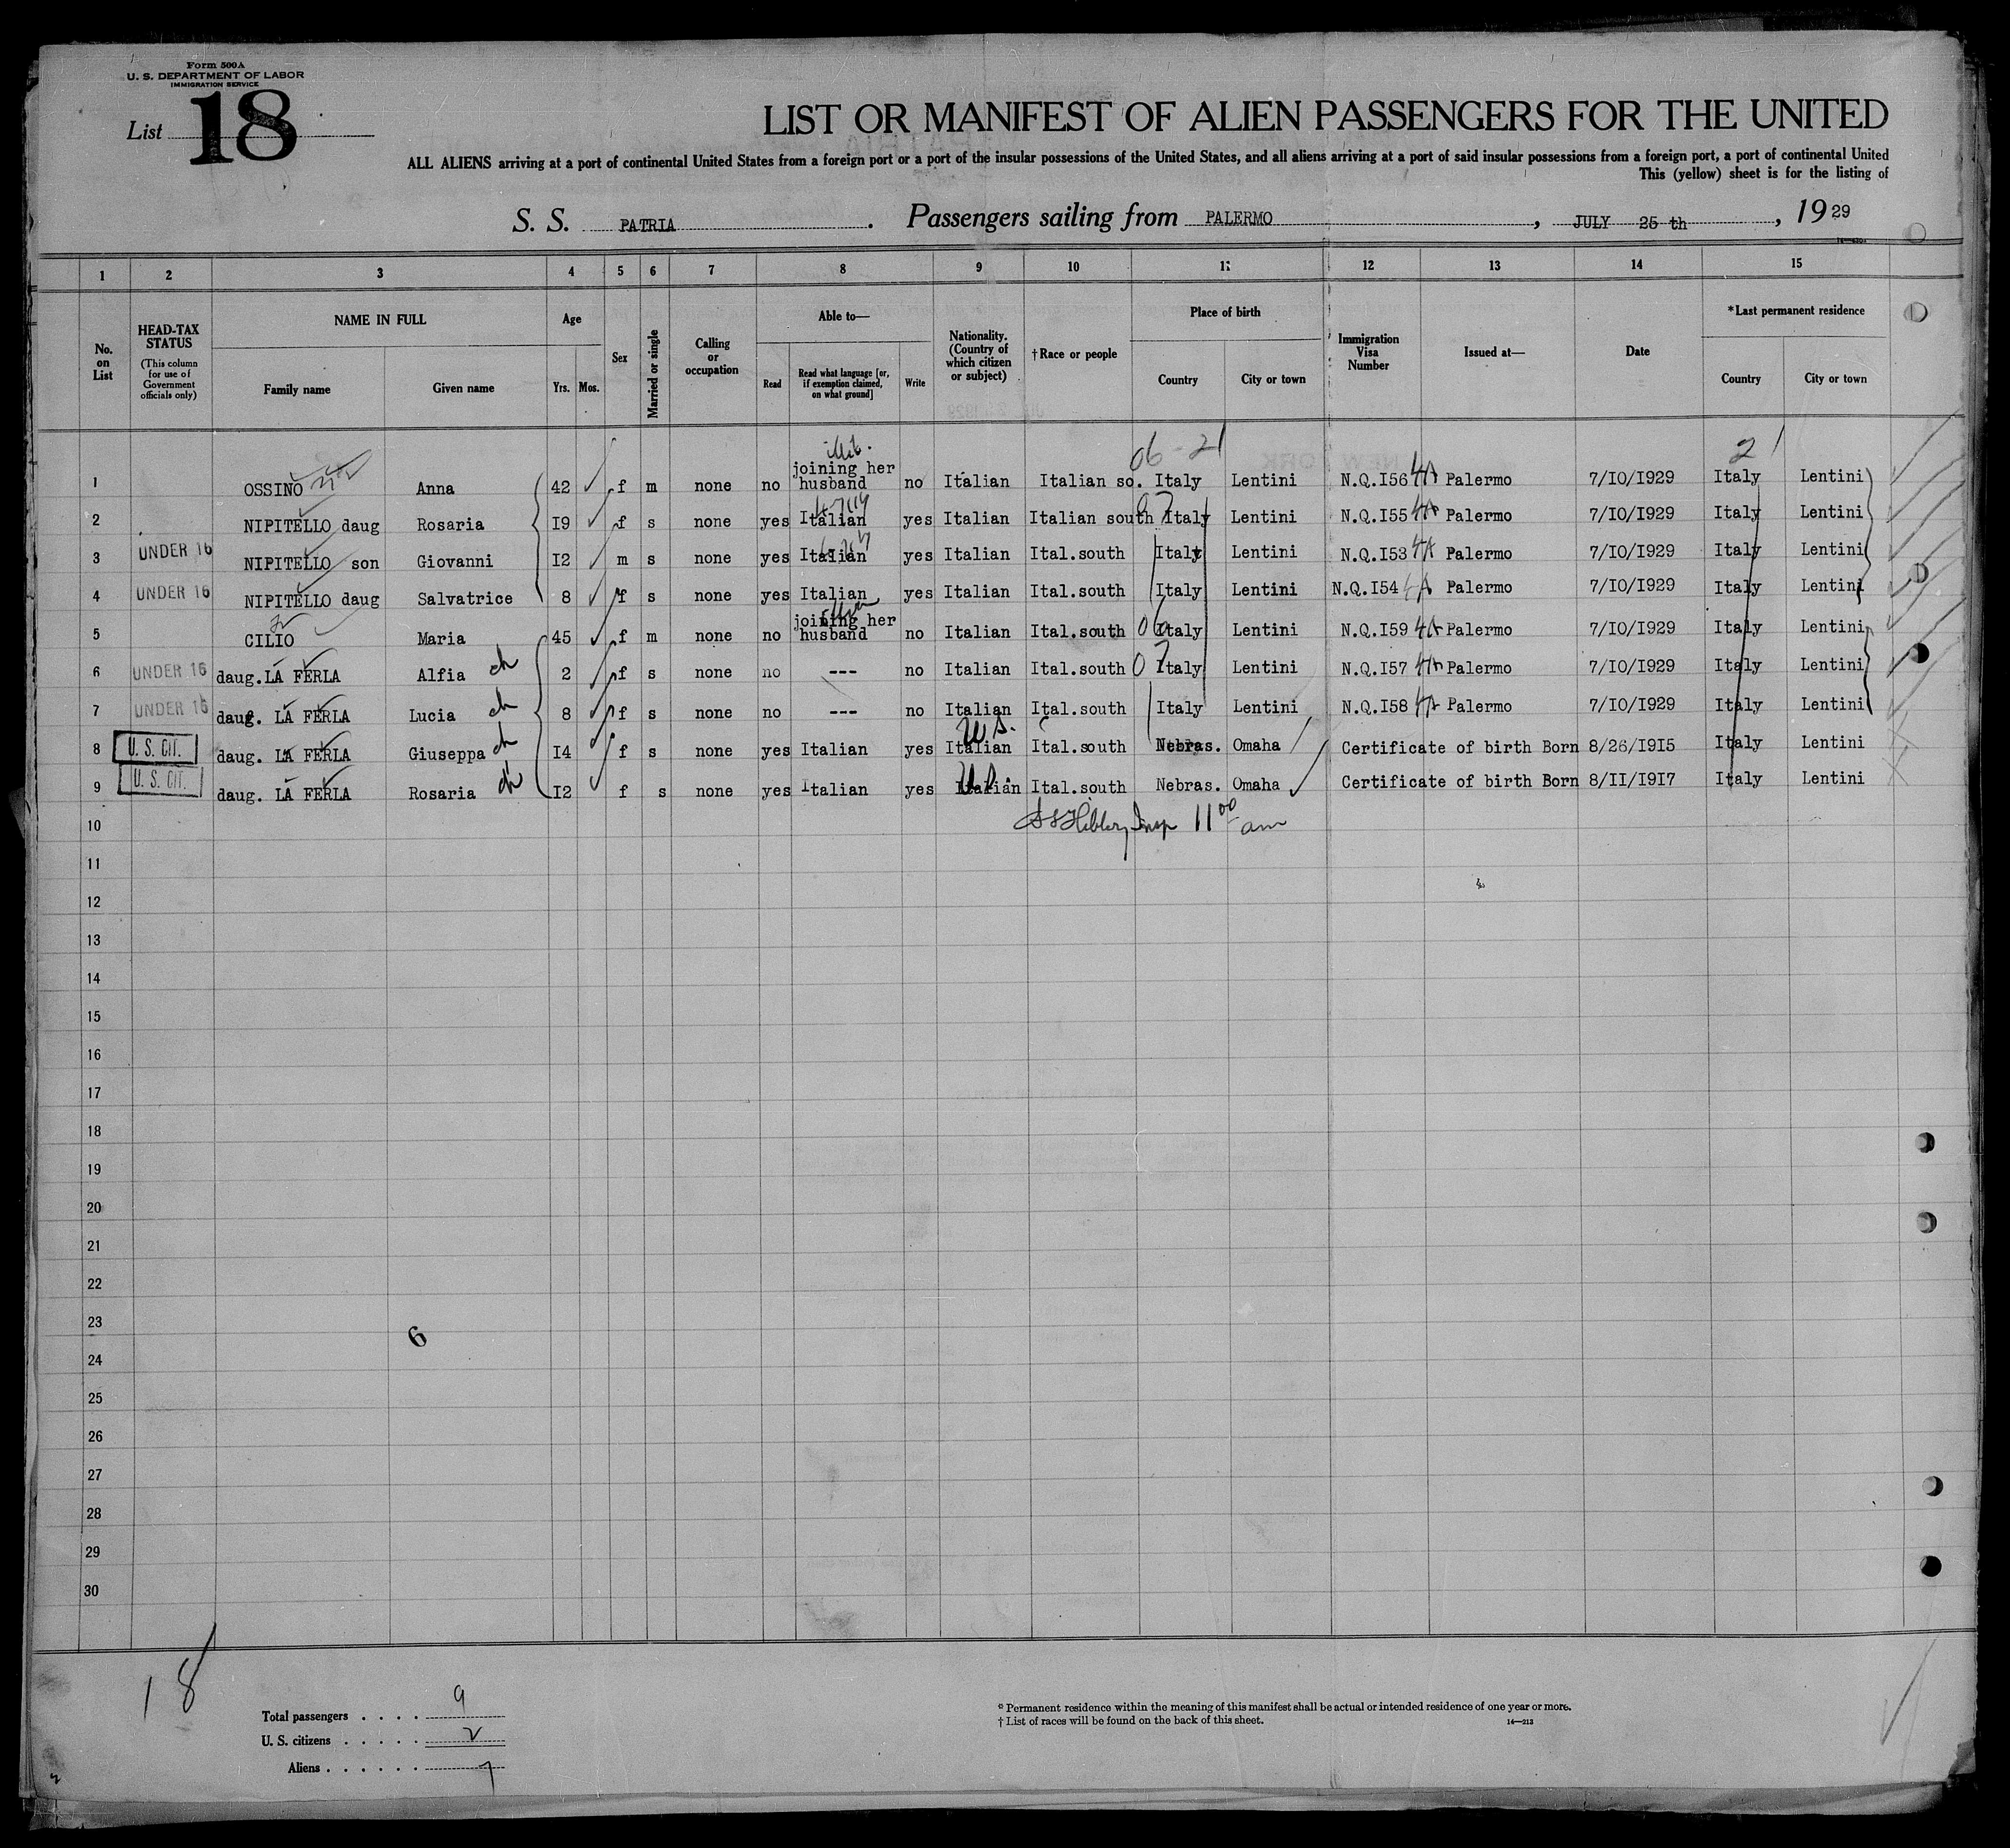 Form 500A
U. S. DEPARTMENT OF LABOR
IMMIGRATION SERVICE
List 18
LIST OR MANIFEST OF ALIEN PASSENGERS FOR THE UNITED
ALL ALIENS arriving at a port of continental United States from a foreign port or a port of the insular possessions of the United States, and all aliens arriving at a port of said insular possessions from a foreign port, a port of continental United
This (yellow) sheet is for the listing of
S. S. PATRIA. Passengers sailing from PALERMO, JULY 25 th, 1929
1 2 3 4 5 6 7 8 9 10 11 12 13 14 15
No. on List
HEAD-TAX STATUS
(This column for use of Government officials only)
NAME IN FULL
Family name Given name
Age
Yrs. Mos.
Sex
Married or single
Calling or occupation
Able to—
Read
Read what language [or, if exemption claimed, on what ground]
Write
Nationality. (Country of which citizen or subject)
†Race or people
Place of birth
Country City or town
Immigration Visa Number
Issued at—
Date
*Last permanent residence
Country City or town
06 - 21 21
1 OSSINO Anna 42 f m none no joining her husband no Italian Italian so. Italy Lentini N.Q.I56 4A Palermo 7/IO/I929 Italy Lentini
2 NIPITELLO daug Rosaria I9 f s none yes Italian yes Italian Italian south 07 Italy Lentini N.Q.I55 4A Palermo 7/IO/I929 Italy Lentini
3 UNDER 16 NIPITELLO son Giovanni I2 m s none yes Italian yes Italian Ital.south Italy Lentini N.Q.I53 4A Palermo 7/IO/I929 Italy Lentini
4 UNDER 16 NIPITELLO daug Salvatrice 8 f s none yes Italian yes Italian Ital.south Italy Lentini N.Q.I54 4A Palermo 7/IO/I929 Italy Lentini
5 CILIO Maria 45 f m none no joining her husband no Italian Ital.south 06 Italy Lentini N.Q.I59 4A Palermo 7/IO/I929 Italy Lentini
6 UNDER 16 daug.LA FERLA Alfia ch 2 f s none no --- no Italian Ital.south 07 Italy Lentini N.Q.I57 4A Palermo 7/IO/I929 Italy Lentini
7 UNDER 16 daug. LA FERLA Lucia ch 8 f s none no --- no Italian Ital.south Italy Lentini N.Q.I58 4A Palermo 7/IO/I929 Italy Lentini
8 U. S. CIT. daug. LA FERLA Giuseppa ch I4 f s none yes Italian yes U.S. Italian Ital.south Nebras. Omaha Certificate of birth Born 8/26/I9I5 Italy Lentini
9 U. S. CIT. daug. LA FERLA Rosaria ch I2 f s none yes Italian yes Italian Ital.south Nebras. Omaha Certificate of birth Born 8/II/I9I7 Italy Lentini
10 Insp 11 00 am
11
12
13
14
15
16
17
18
19
20
21
22
23
6
24
25
26
27
28
29
30
18
Total passengers . . . . 9
U. S. citizens . . . . . 2
Aliens . . . . . . 7
* Permanent residence within the meaning of this manifest shall be actual or intended residence of one year or more.
† List of races will be found on the back of this sheet.
14—213